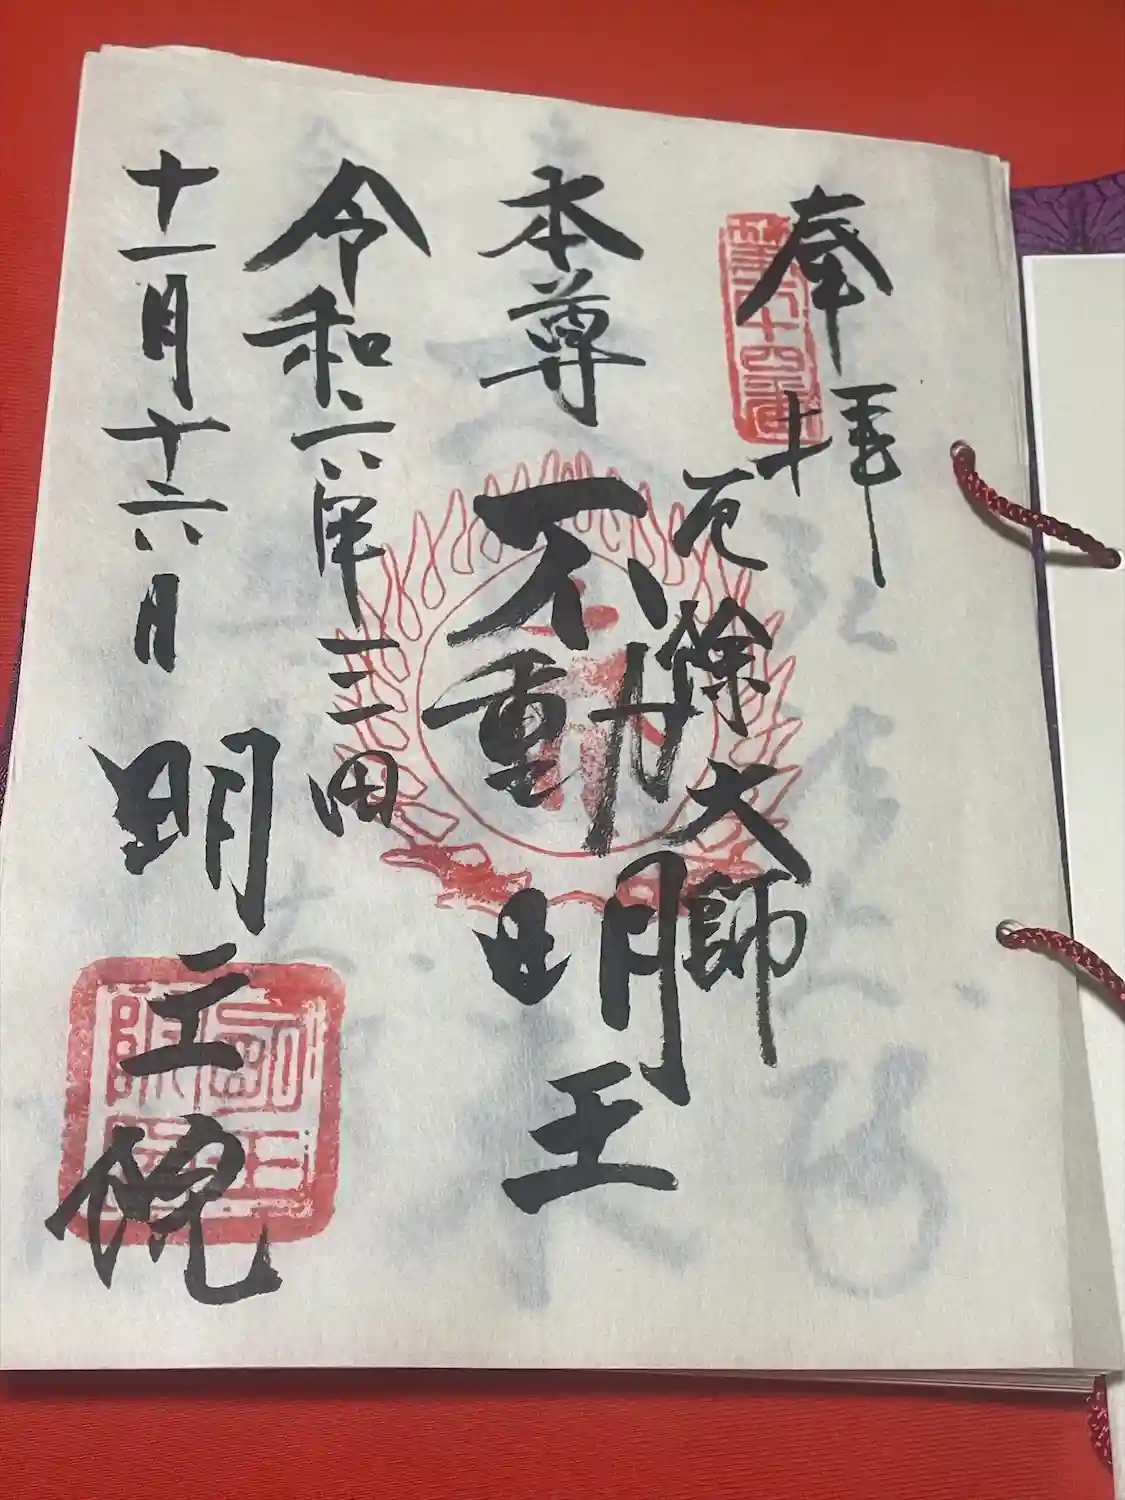 奉拝
第六十四番
厄除大師
本尊 不動明王
令和六年 三田
十一月十六日 明王院
明王院